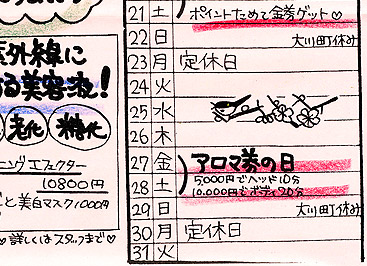 外線に
る美容液!
老化 糖化
ニングエフェクター
10800円
と美白マスク1000円
♡詳しくはスタッフまで♡
21 土 ポイントためて金券ゲット♡
22 日 大川町休み
23 月 定休日
24 火
25 水
26 木
27 金 アロマ券の日
28 土 5,000円でヘッド10分
10,000円でボディ20分
29 日 大川町休み
30 月 定休日
31 火